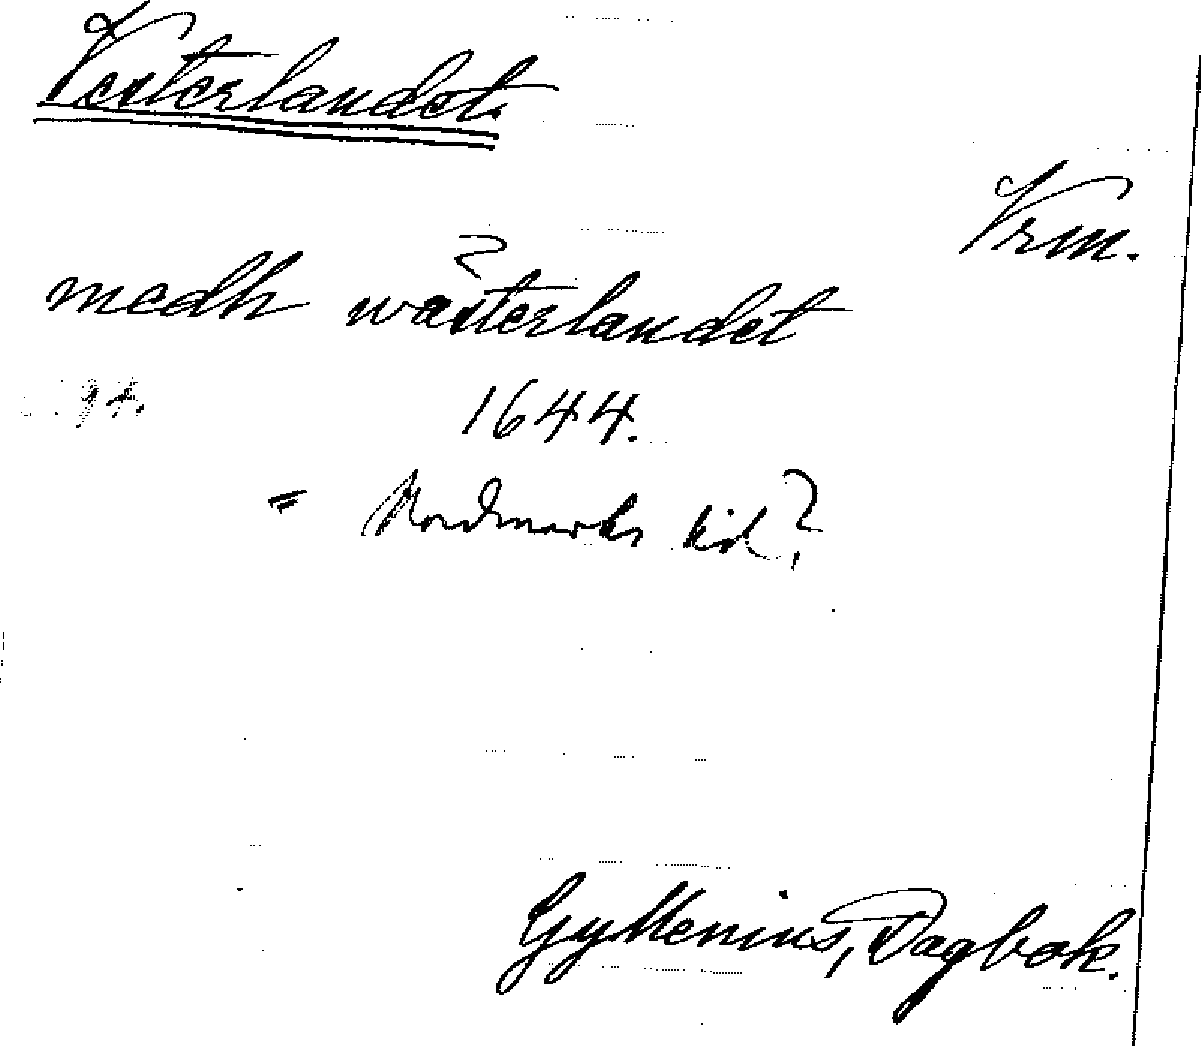 Vesterlandet.
Vrm.
medh wästerlandet
1644.
= Nordmarks
Gyllenius, Dagbok.